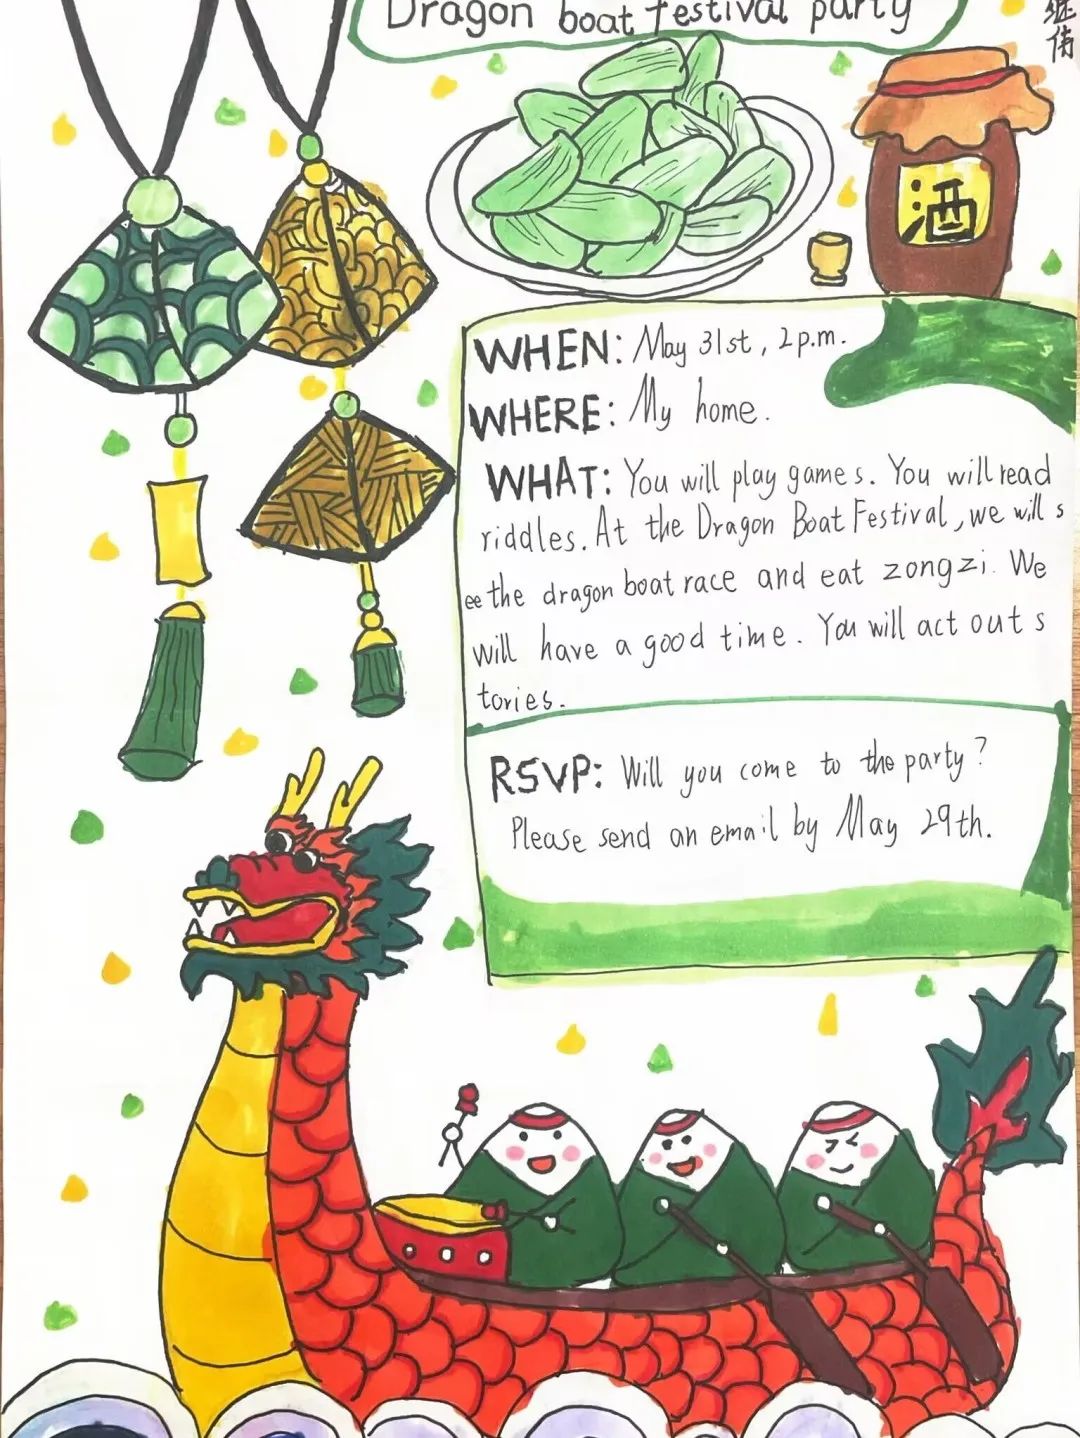 Dragon boat festival party
继
伟
酒
WHEN: May 31st, 2p.m.
WHERE: My home.
WHAT: You will play games. You will read
riddles. At the Dragon Boat Festival, we will s
ee the dragon boat race and eat zongzi. We
will have a good time. You will act out s
tories.
RSVP: Will you come to the party?
Please send an email by May 29th.